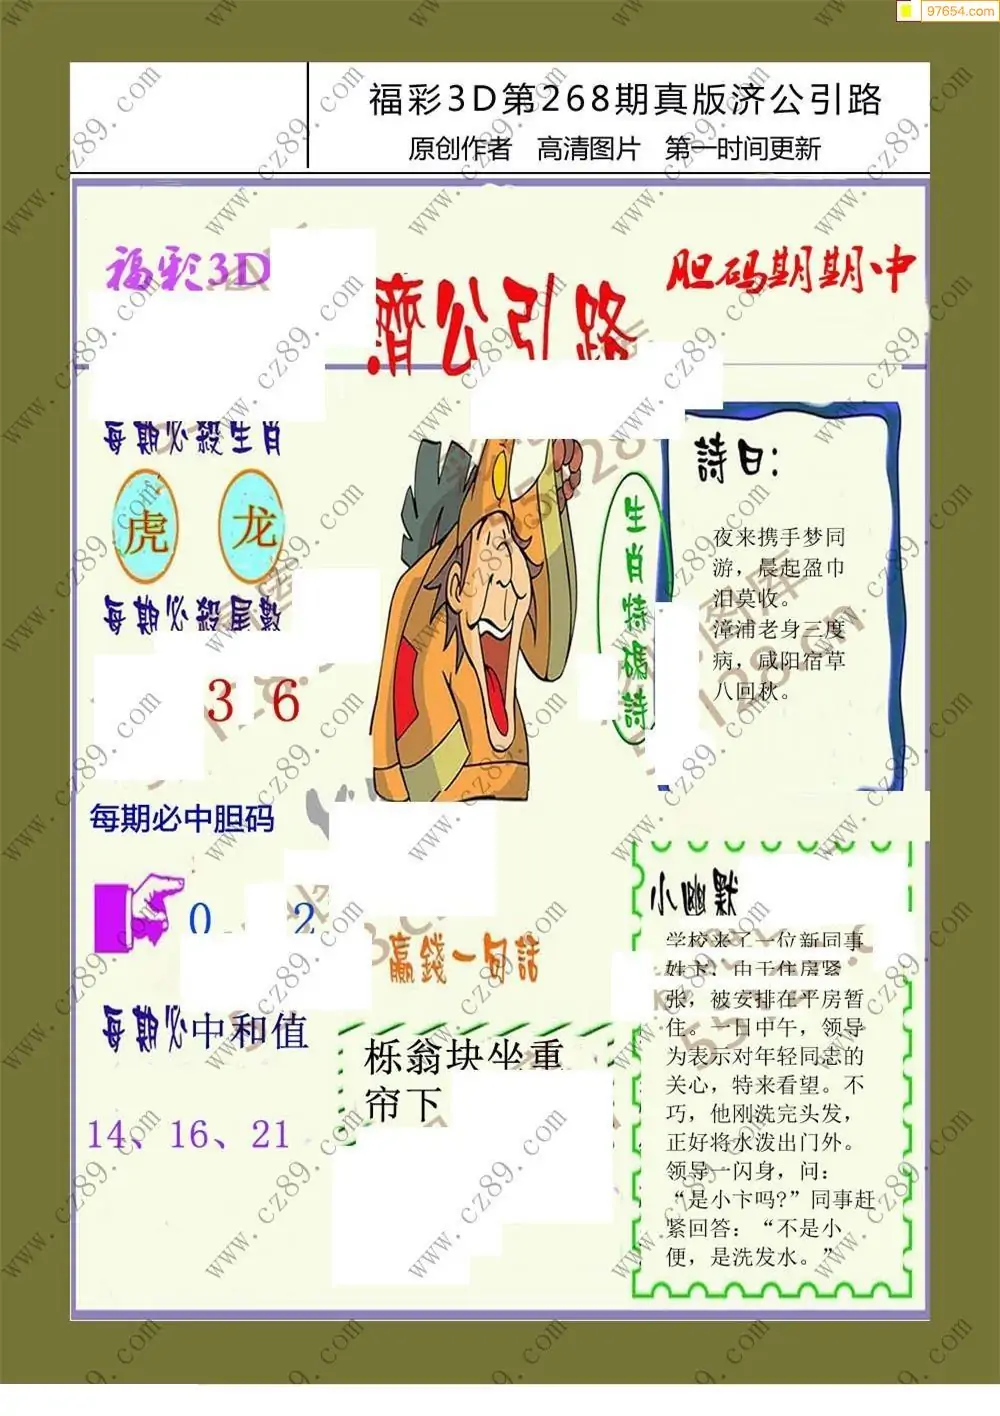 97654.com
福彩3D第268期真版济公引路
原创作者 高清图片 第一时间更新
福彩3D
濟公引路
胆码期期中
每期必殺生肖
虎 龙
每期必殺尾數
3 6
生肖特碼詩
詩曰:
夜来携手梦同
游，晨起盈巾
泪莫收。
漳浦老身三度
病，咸阳宿草
八回秋。
每期必中胆码
0 2
赢錢一句話
每期必中和值
14、16、21
栎翁块坐重
帘下
小幽默
学校来了一位新同事
姓卞，由于住房紧
张，被安排在平房暂
住。一日中午，领导
为表示对年轻同志的
关心，特来看望。不
巧，他刚洗完头发，
正好将水泼出门外。
领导一闪身，问：
“是小卞吗?”同事赶
紧回答：“不是小
便，是洗发水。”
www.cz89.com